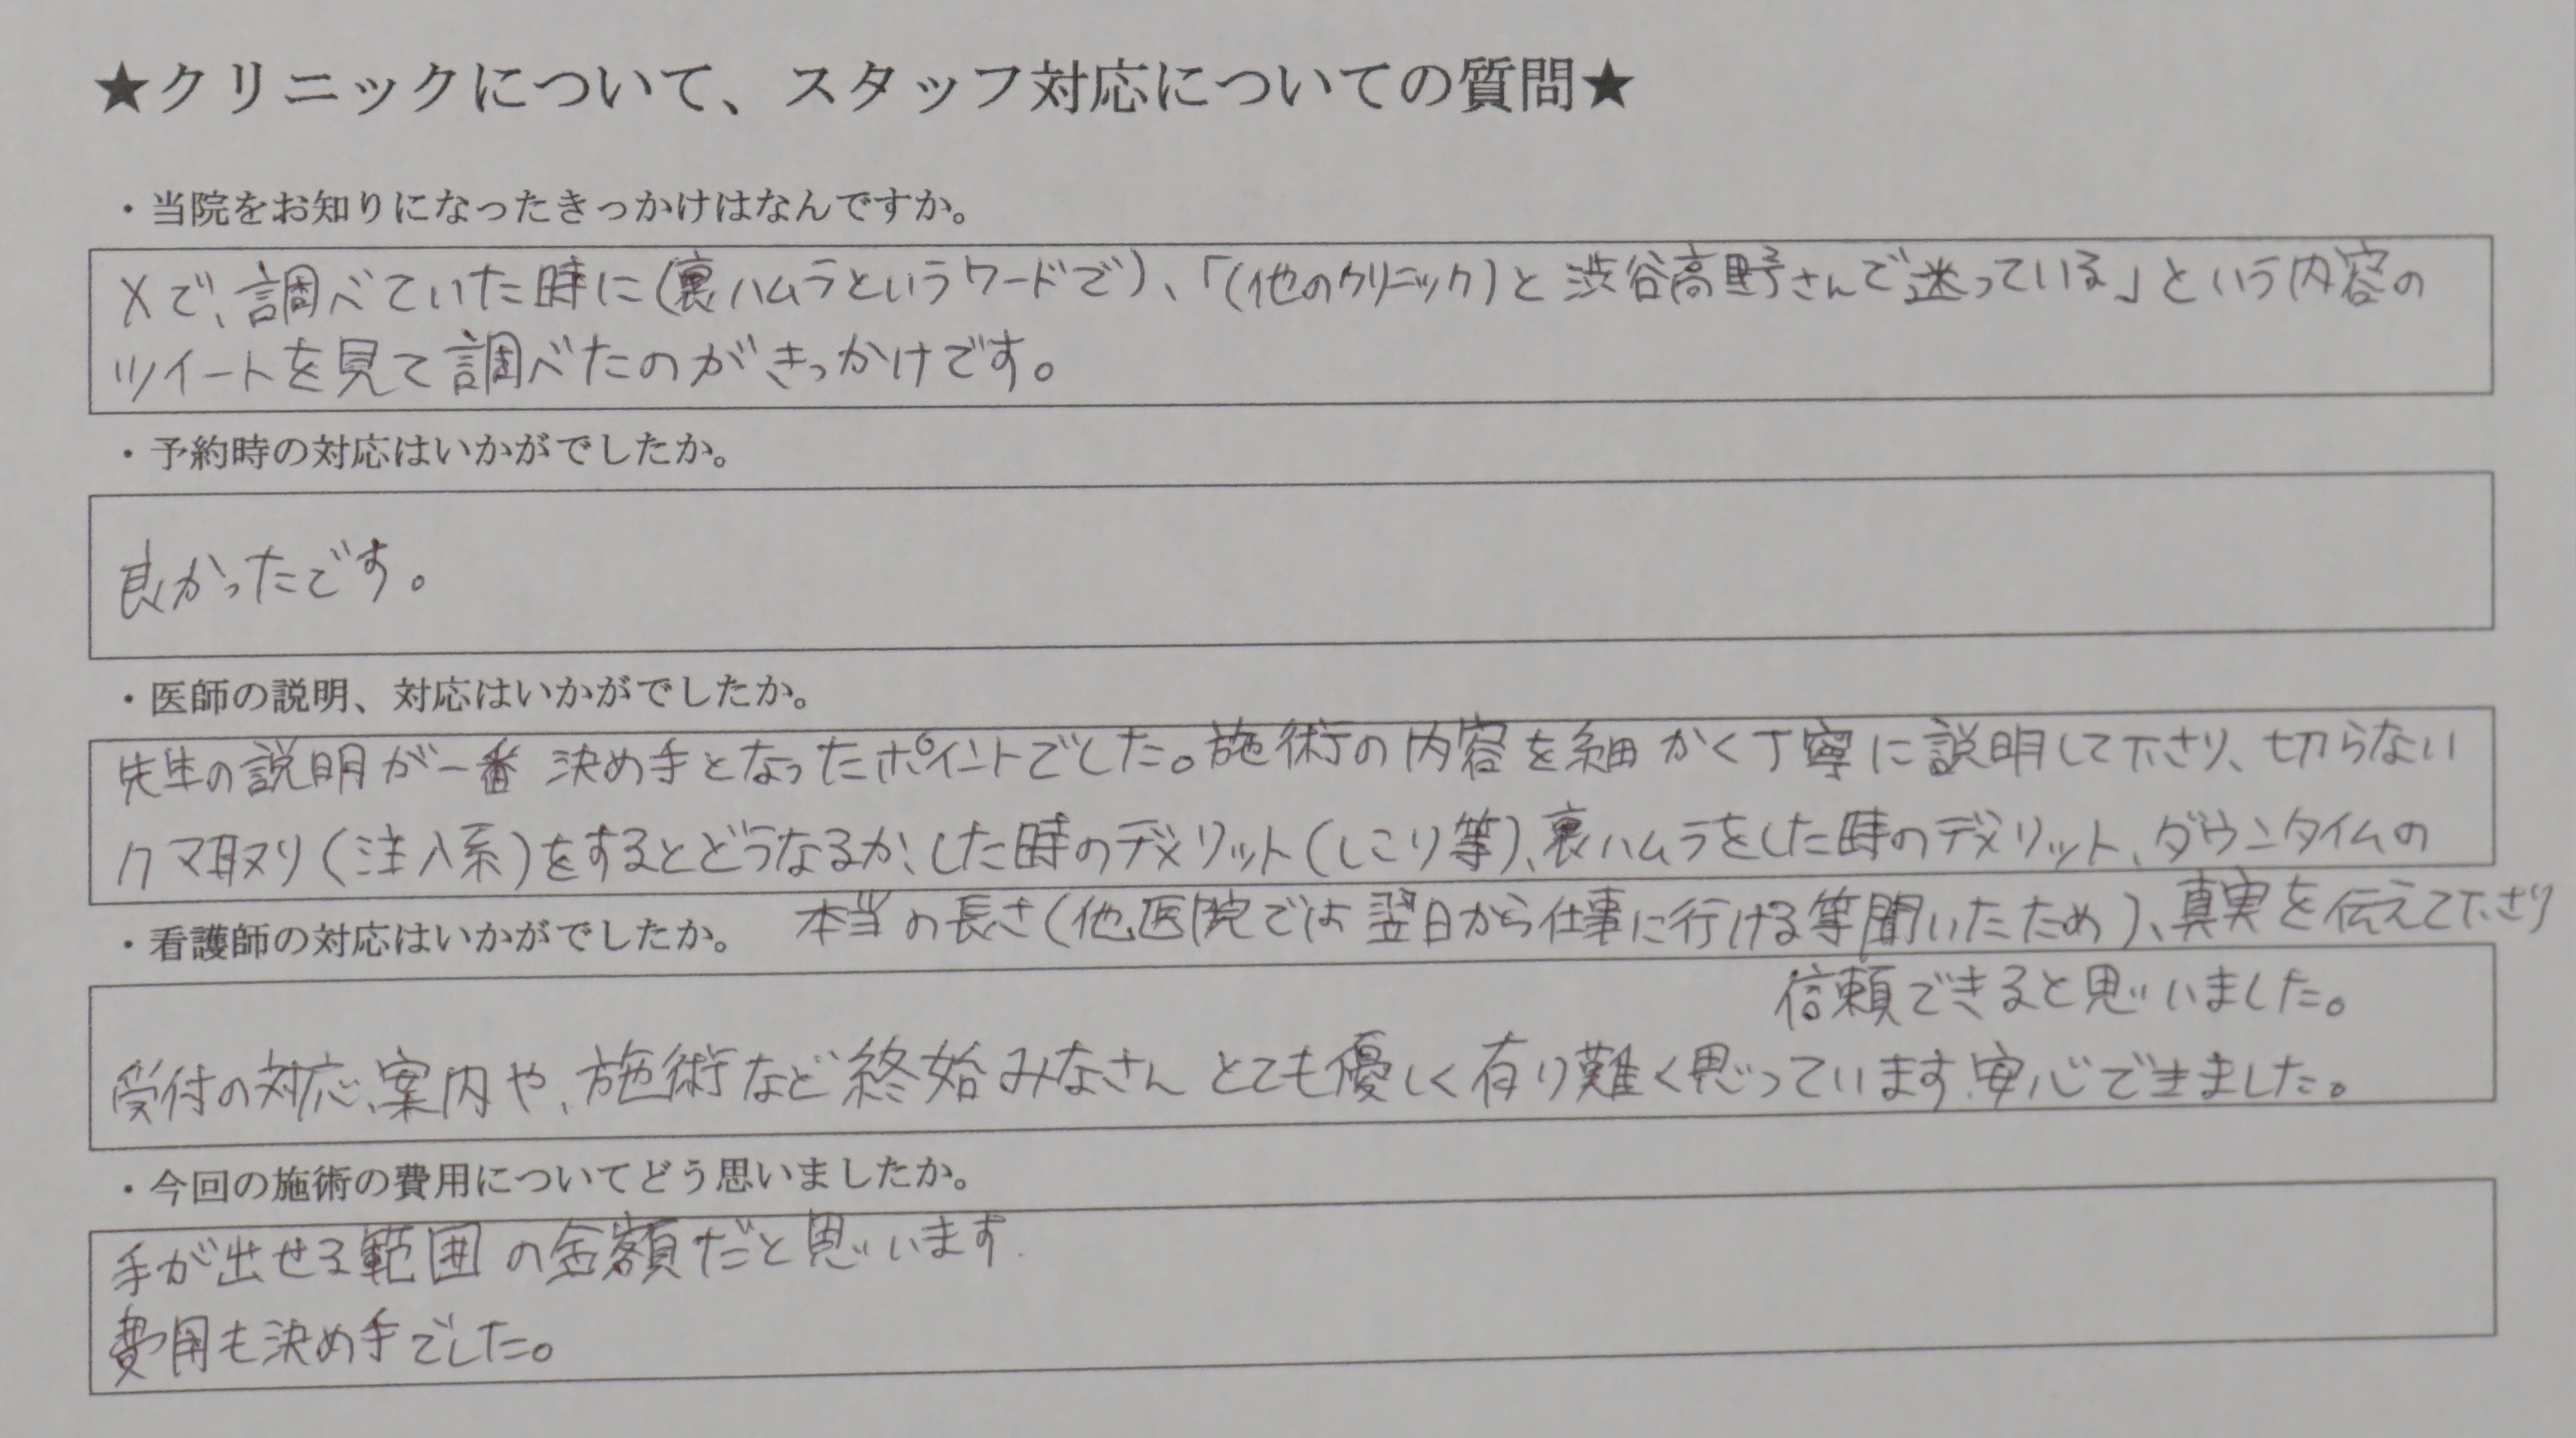 ★クリニックについて、スタッフ対応についての質問★
・当院をお知りになったきっかけはなんですか。
Xで、調べていた時に(裏ハムラというワードで)、「(他のクリニック)と渋谷高野さんで迷っている」という内容の
ツイートを見て調べたのがきっかけです。
・予約時の対応はいかがでしたか。
良かったです。
・医師の説明、対応はいかがでしたか。
先生の説明が一番決め手となったポイントでした。施術の内容を細かく丁寧に説明して下さり、切らない
クマ取り(注入系)をするとどうなるか、した時のデメリット(しこり等)、裏ハムラをした時のデメリット、ダウンタイムの
本当の長さ(他医院では翌日から仕事に行ける等聞いたため)、真実を伝えて下さり
信頼できると思いました。
・看護師の対応はいかがでしたか。
受付の対応、案内や、施術など終始みなさんとても優しく有り難く思っています.安心できました。
・今回の施術の費用についてどう思いましたか。
手が出せる範囲の金額だと思います.
費用も決め手でした。